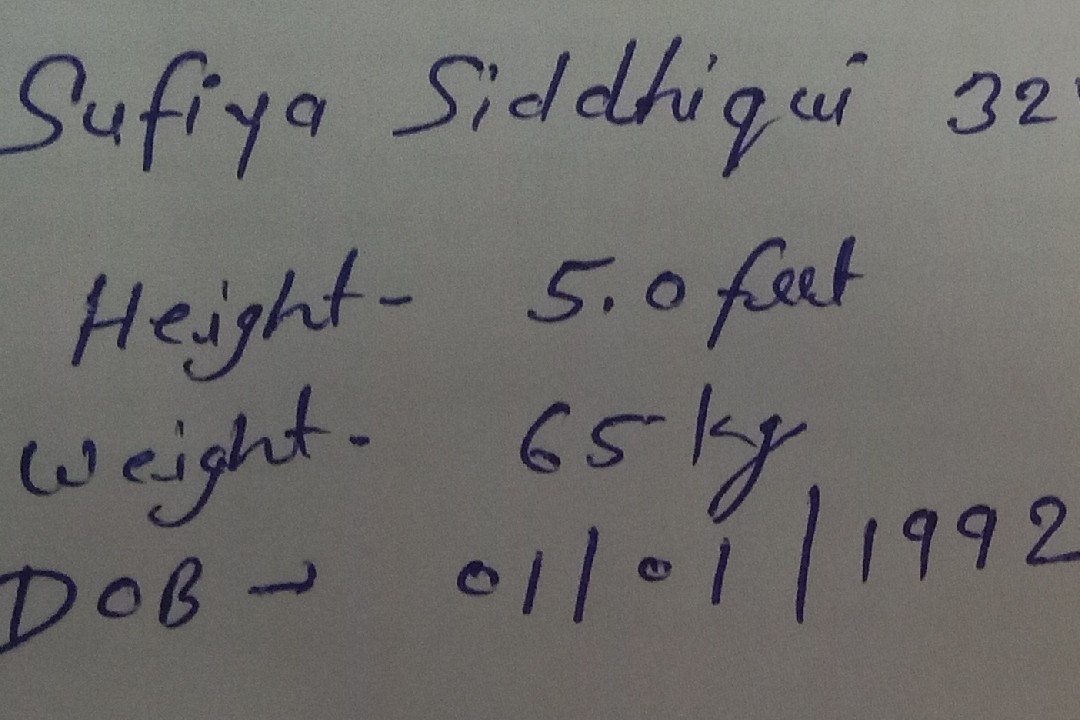 Sufiya Siddhiqui 32
Height- 5.0 feet
Weight- 65 kg
DOB → 01/01/1992